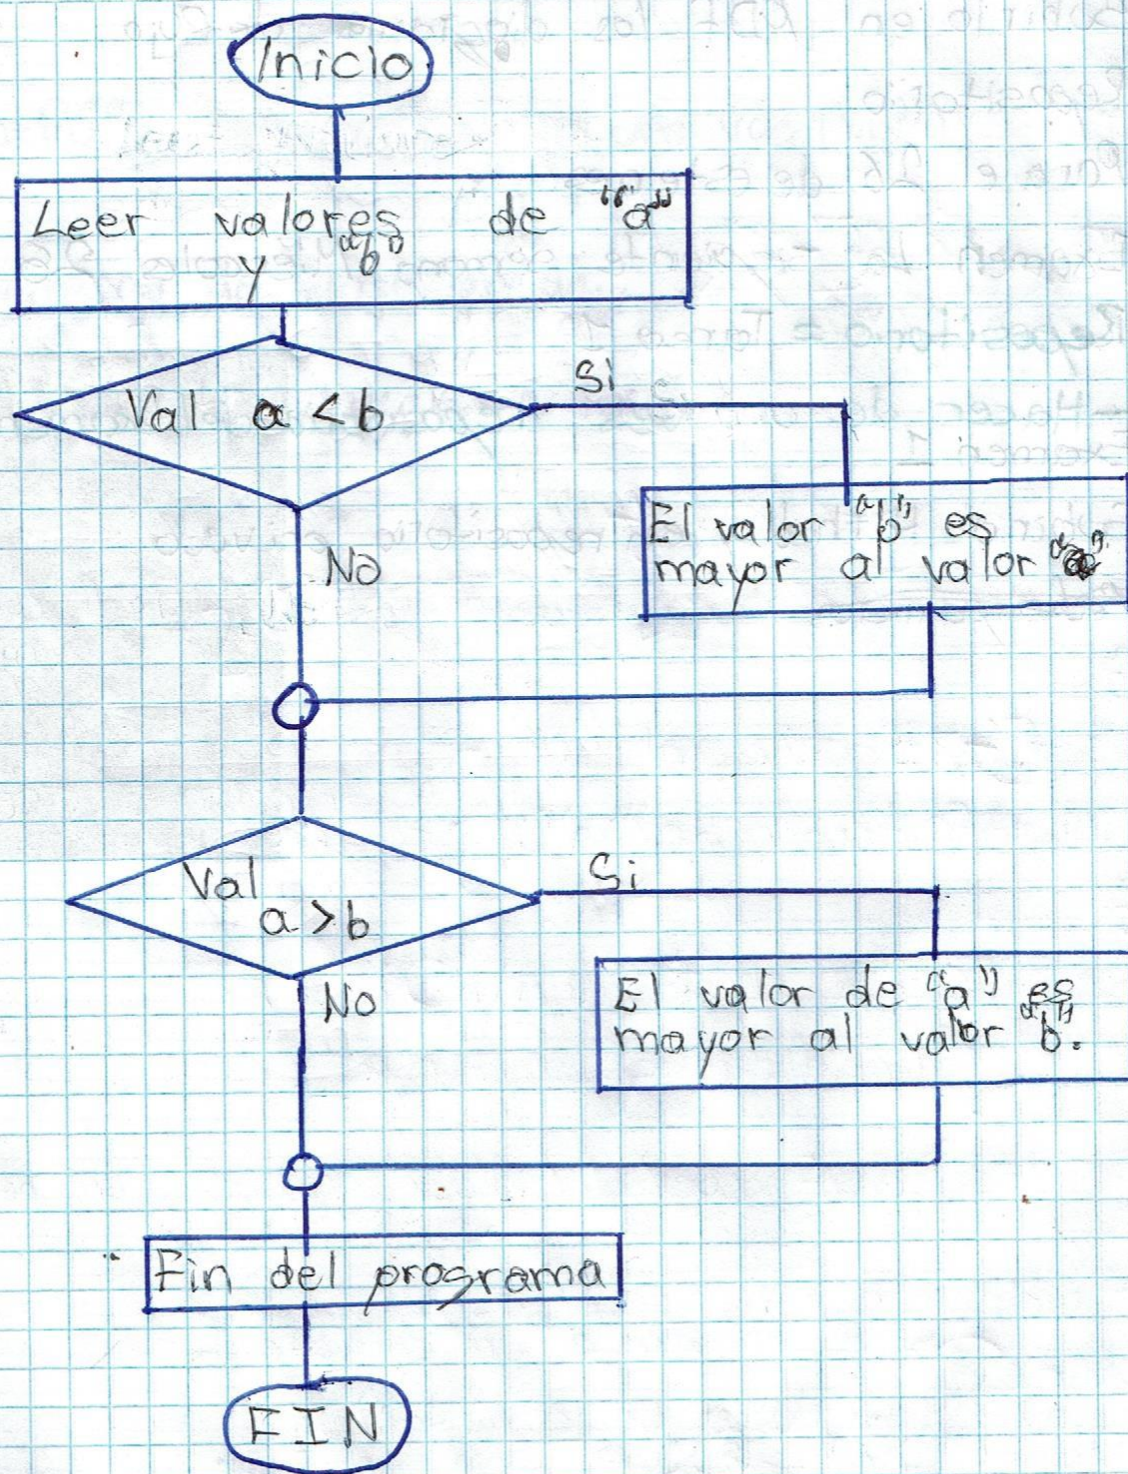 Inicio
Leer valores de "a"
y "b"
Val a < b
Si
El valor "b" es
mayor al valor "a"
No
Val
a > b
Si
El valor de "a" es
mayor al valor "b".
No
Fin del programa
FIN